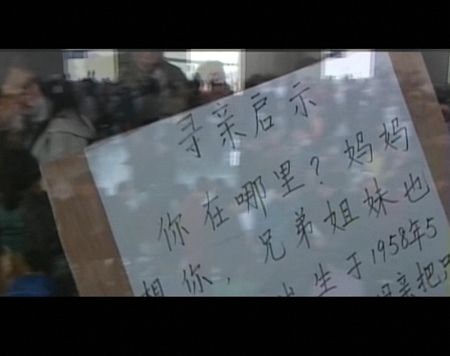 寻亲启示
你在哪里？妈妈
想你，兄弟姐妹也
出生于1958年5
母亲把